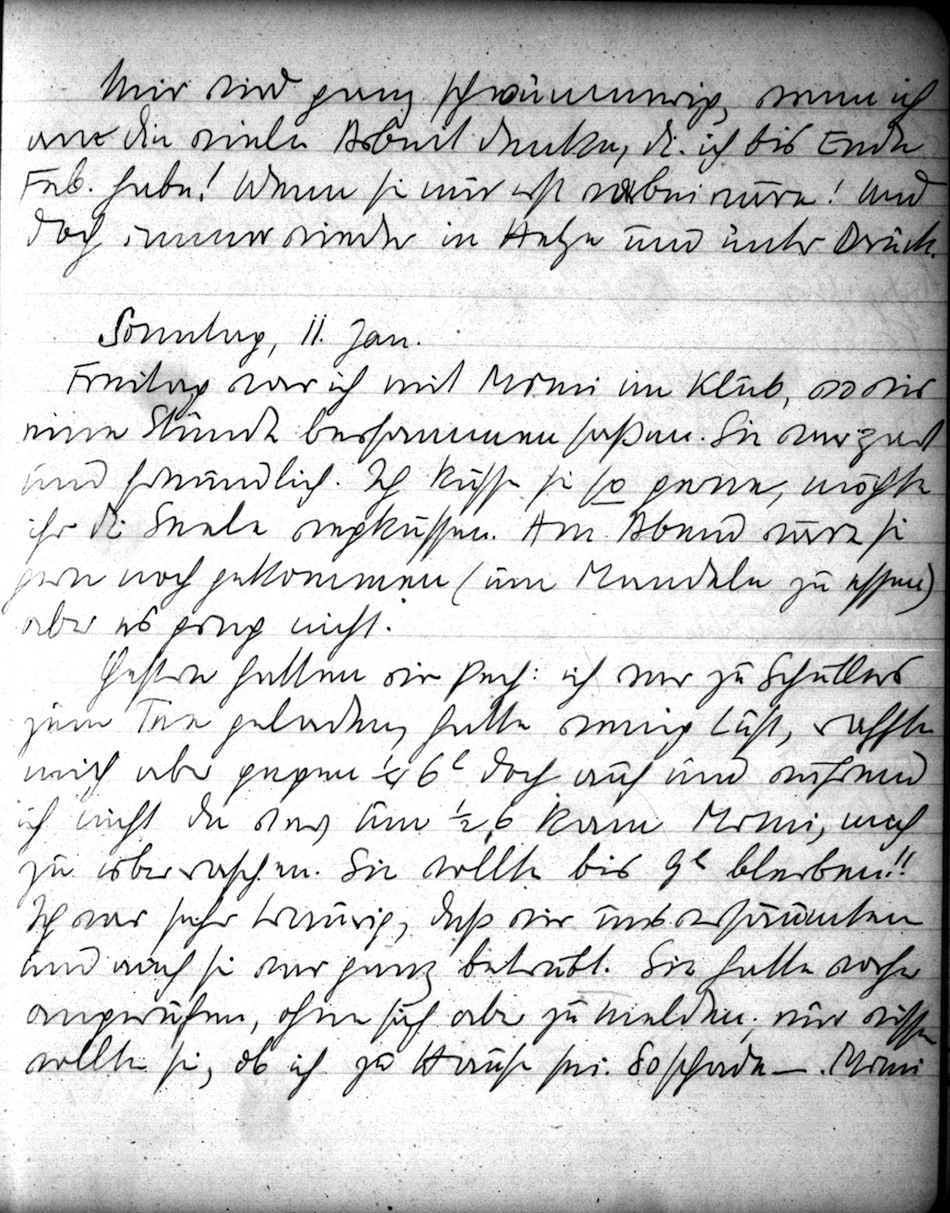 Mir wird ganz schwummerig, wenn ich
an die viele Arbeit denke, die ich bis Ende
Feb. habe! Wenn sie nur erst vorbei wäre! Und
doch immer wieder in Hetze und unter Druck.
Sonntag, 11. Jan.
Freitag war ich mit Momi im Klub, wo wir
eine Stunde beisammen saßen. Sie war zart
und freundlich. Ich küsse sie so gerne, möchte
ihr die Seele wegküssen. Am Abend wäre sie
gern noch gekommen (um Mandeln zu essen)
aber es ging nicht.
Gestern hatten wir Pech: ich war zu Schüttlers
zum Tee geladen, hatte wenig Lust, raffte
mich aber gegen ¼ 6h doch auf und während
ich nicht da war, um ½ 6 kam Momi, mich
zu überraschen. Sie wollte bis 9h bleiben!!
Ich war sehr traurig, daß wir uns versäumten
und auch sie war ganz betrübt. Sie hatte vorher
angerufen, ohne sich aber zu melden, nur wissen
wollte sie, ob ich zu Hause sei. So schade —. Momi